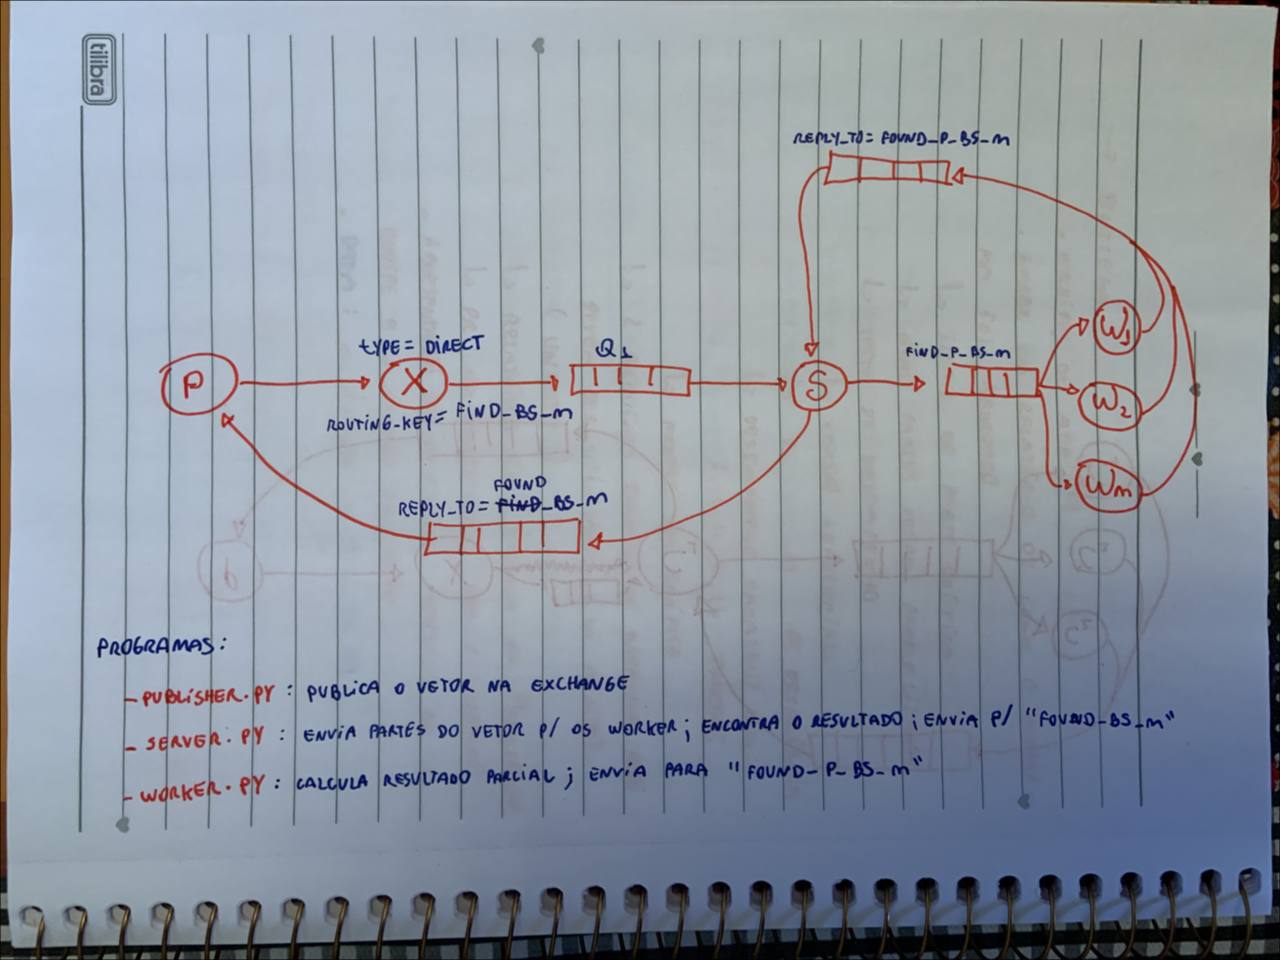 tilibra
REPLY_TO = FOUND_P_BS_m
TYPE = DIRECT
Q1
FIND_P_BS_m
W1
P
X
S
W2
ROUTING-KEY = FIND_BS_m
Wm
FOUND
REPLY_TO = FIND_BS_m
PROGRAMAS:
- PUBLISHER.PY : PUBLICA O VETOR NA EXCHANGE
- SERVER.PY : ENVIA PARTES DO VETOR P/ OS WORKER; ENCONTRA O RESULTADO; ENVIA P/ "FOUND_BS_m"
- WORKER.PY : CALCULA RESULTADO PARCIAL; ENVIA PARA "FOUND_P_BS_m"